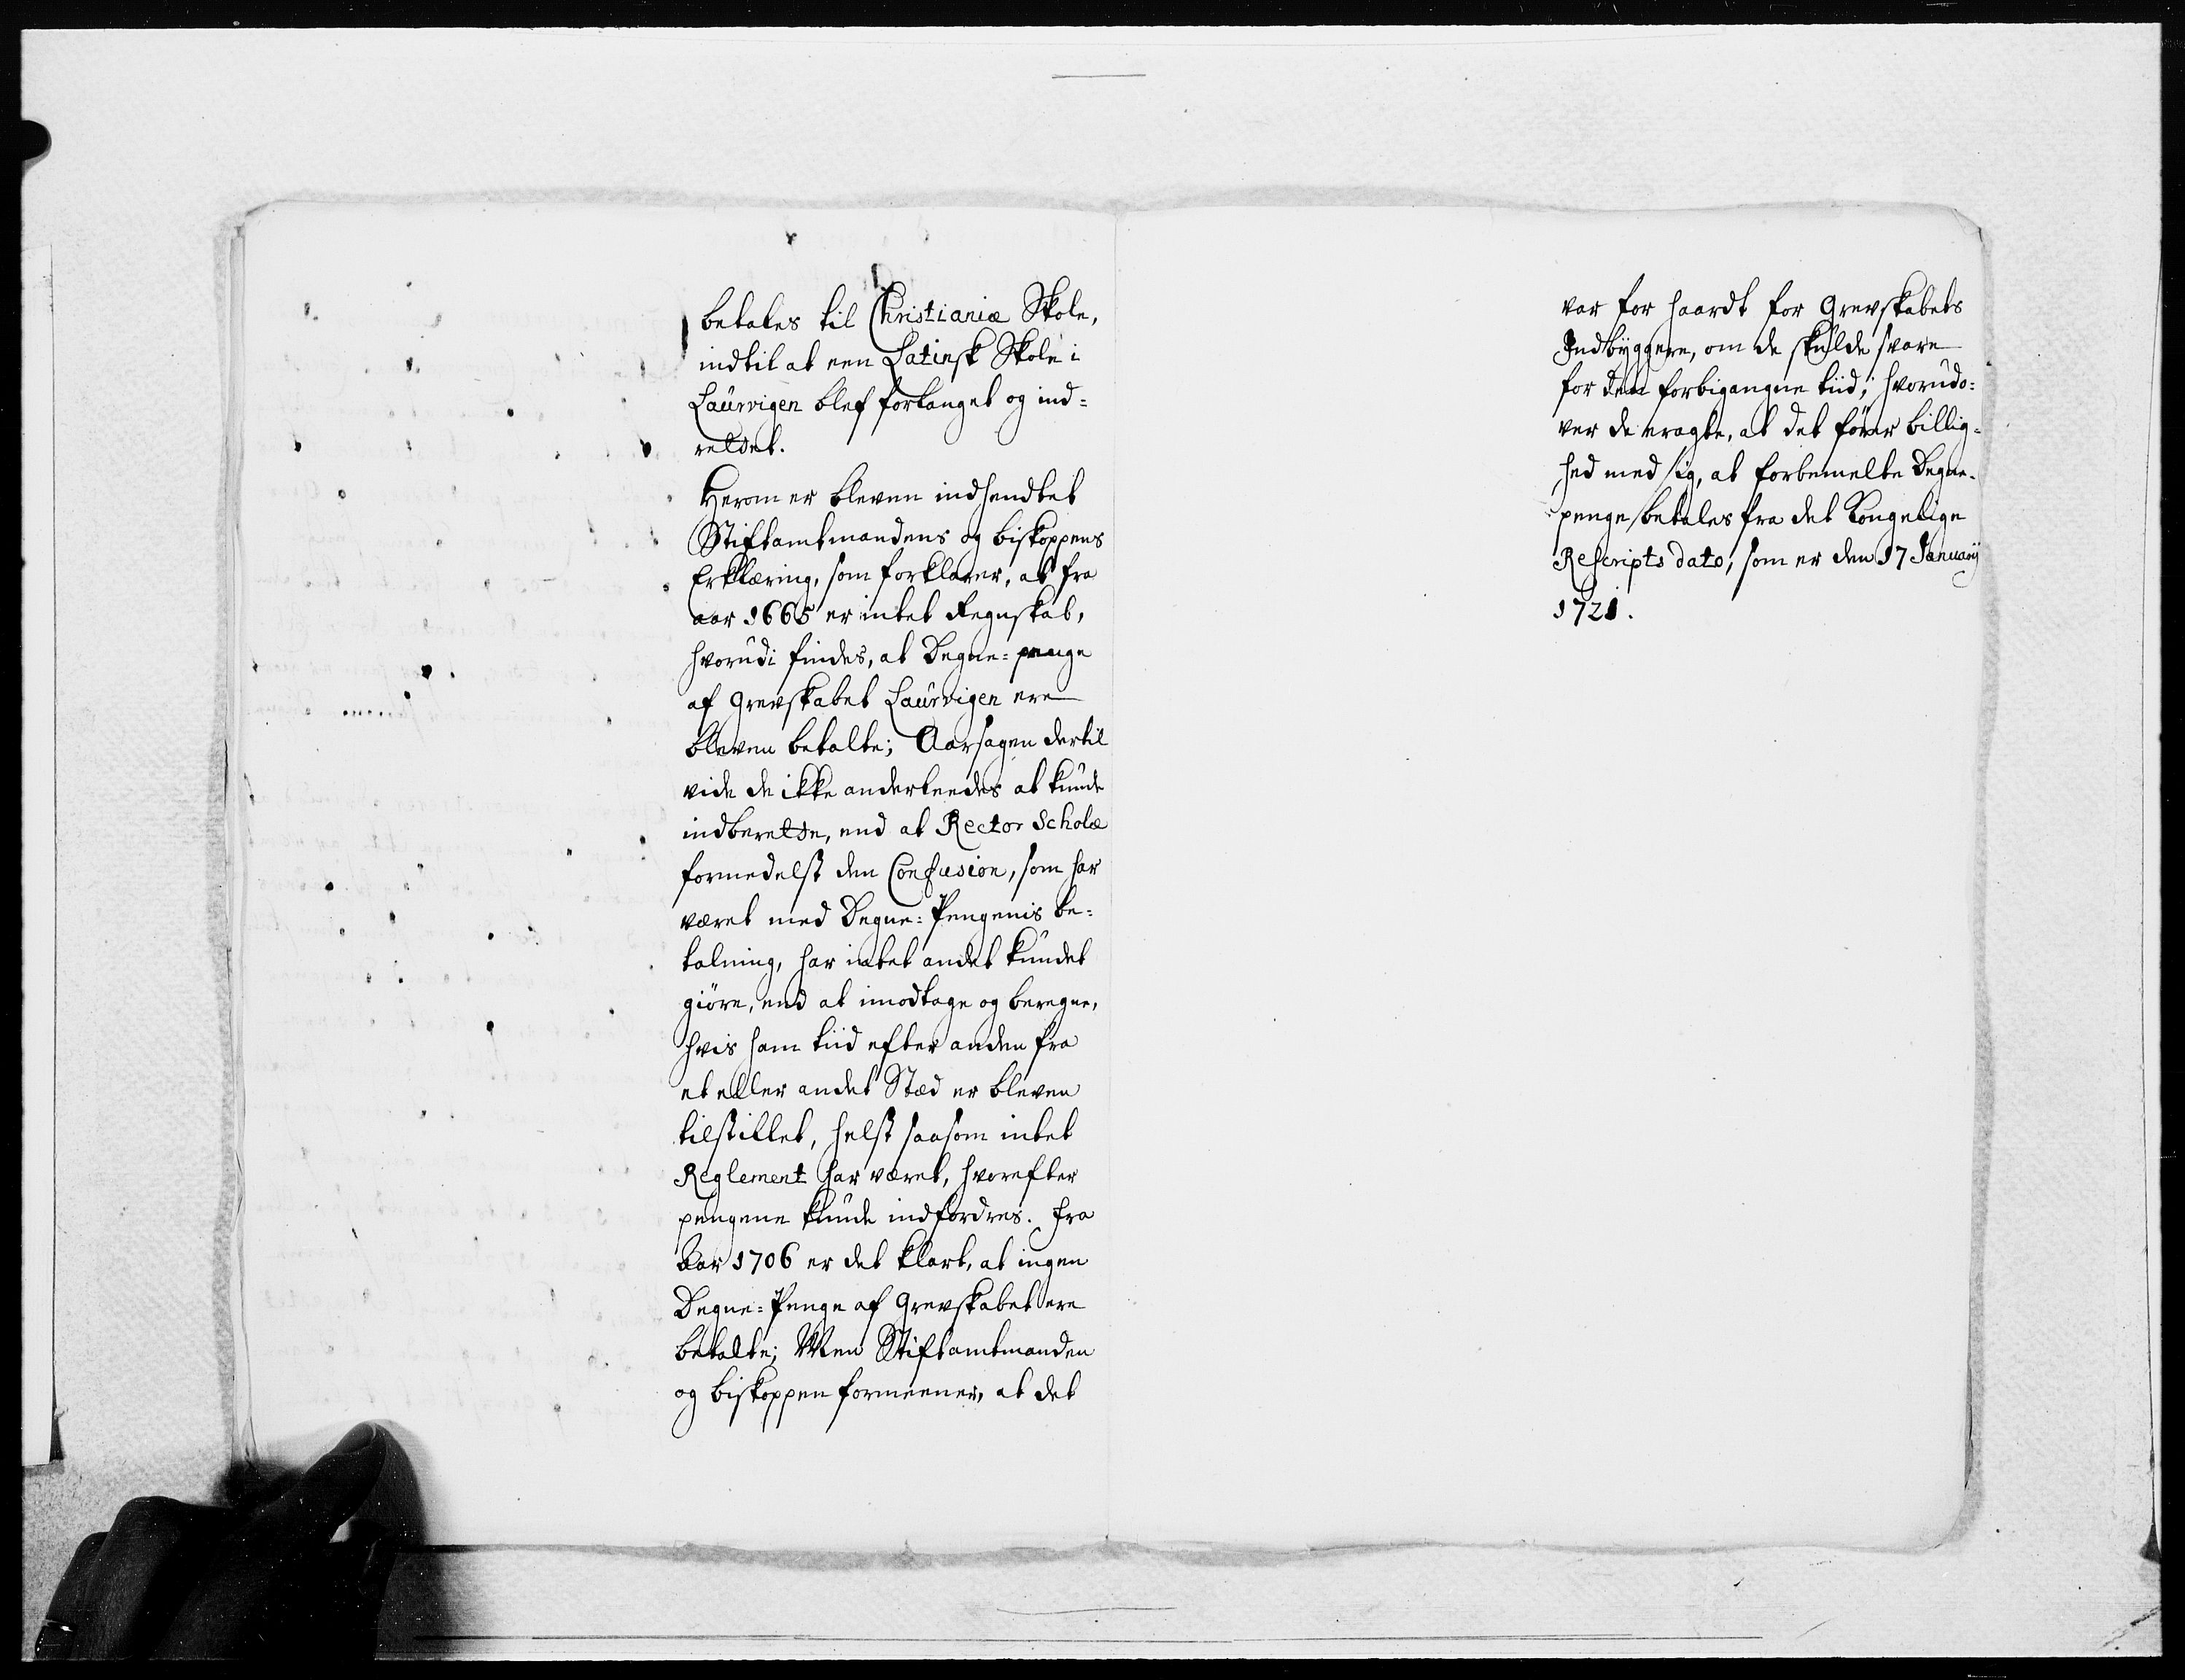 betales til Christianiæ Skole,
indtil at een Latinsk Skole i
Laurvigen blef forlanget og ind-
rettet.
Herom er bleven indhendtet
Stiftamtmandens og biskoppens
Erklæring, som forklarer, at fra
aar 1665 er intet Regnskab,
hvorudi findes, at Degne-penge
af grevskabet Laurvigen ere
bleven betalte; Aarsagen dertil
vide de ikke anderleedes at kunde
indberette, end at Rector Scholæ
formedelst den Confusion, som har
været med Degne-Pengenis be-
talning, har intet andet kundet
giøre, end at imodtage og beregne,
hvis ham tiid efter anden fra
et eller andet Stæd er bleven
tilstillet, helst saasom intet
Reglement har været, hvorefter
pengene kunde indfordres. Fra
Aar 1706 er det klart, at ingen
Degne-Penge af Grevskabet ere
betalte; Men Stiftamtmanden
og biskoppen formeener, at det
var for haardt for Grevskabets
Indbyggere, om de skulde svare
for den forbigangne tiid; hvorudo-
ver de eragte, at det fører billig-
hed med sig, at forbemelte Degne-
penge betales fra det Kongelige
Rescripts dato, som er den 17 Januarij
1721.